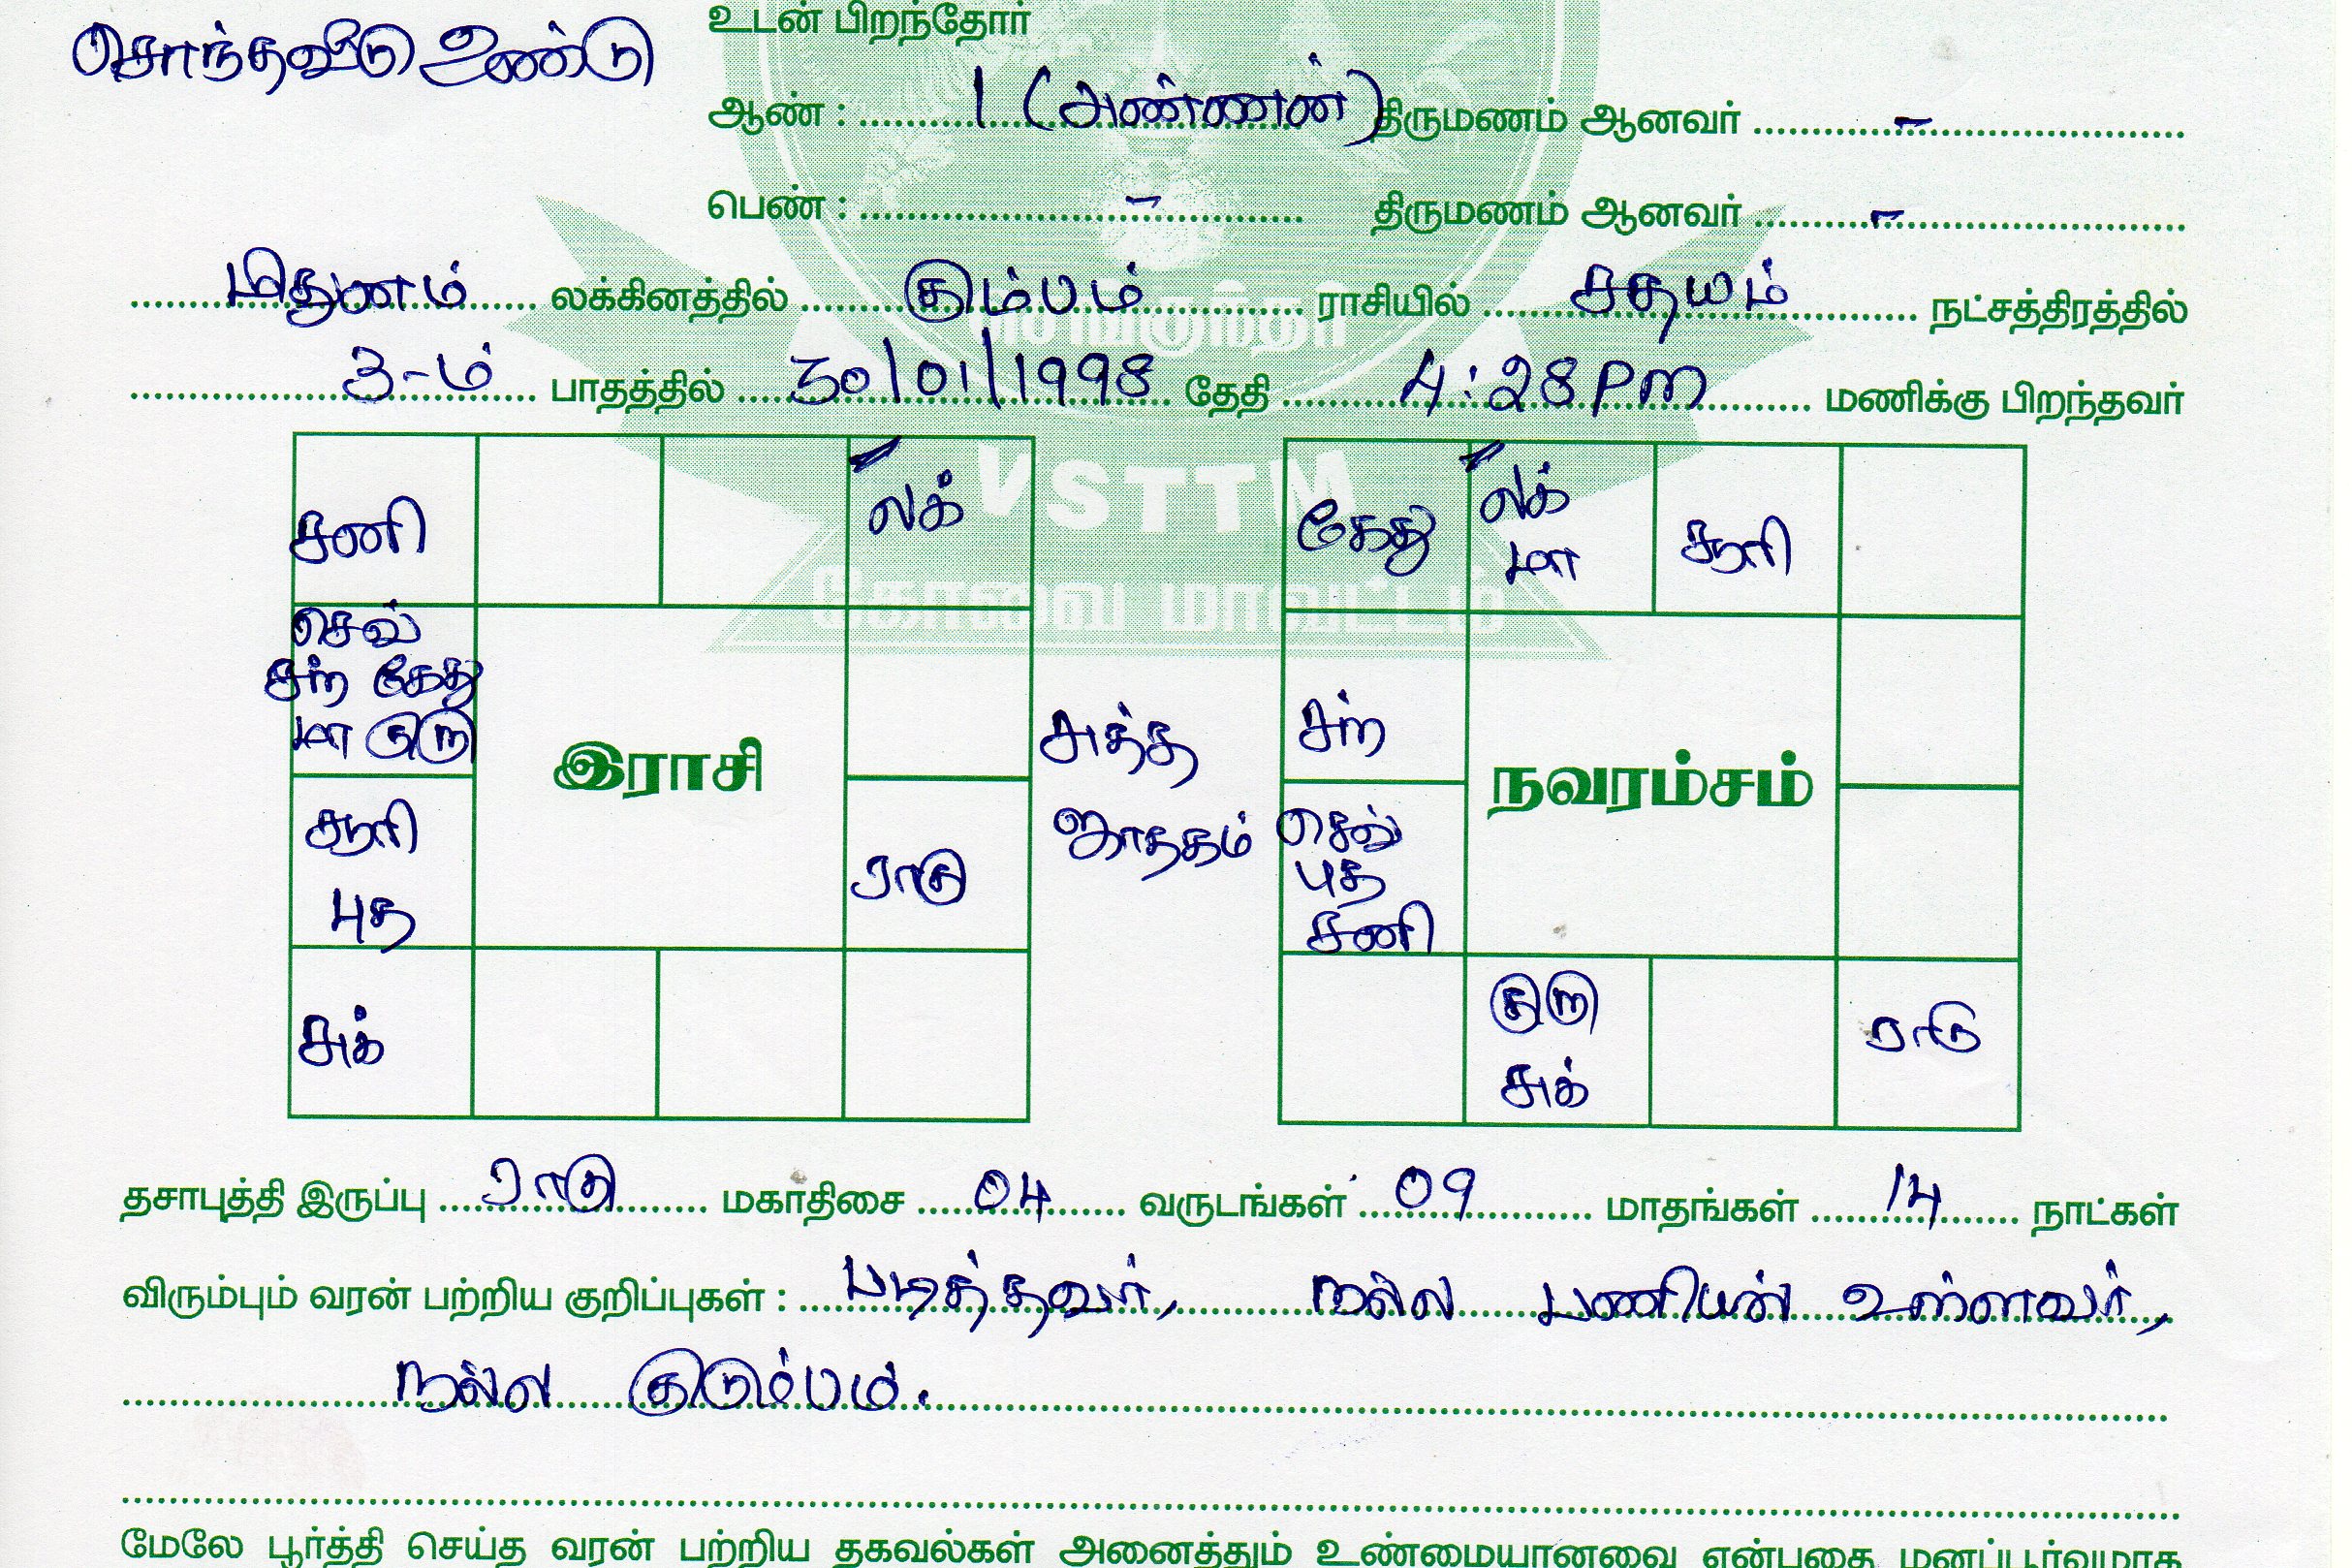 சொந்தவீடு உண்டு
உடன் பிறந்தோர்
ஆண் : 1 (அண்ணன்) திருமணம் ஆனவர் -
பெண் : - திருமணம் ஆனவர் -
மிதுணம் லக்கினத்தில் கும்பம் ராசியில் சதயம் நட்சத்திரத்தில்
3-ம் பாதத்தில் 30/01/1998 தேதி 4:28 PM மணிக்கு பிறந்தவர்
VSTTM
கோவை மாவட்டம்
சனி
லக்
செவ்
சந் கேது
மா குரு
இராசி
சூரி
புத
ராகு
சுக்
சுத்த
ஜாதகம்
கேது
லக்
மா
சூரி
சந்
நவரம்சம்
செவ்
புத
சனி
குரு
சுக்
ராகு
தசாபுத்தி இருப்பு ராகு மகாதிசை 04 வருடங்கள் 09 மாதங்கள் 14 நாட்கள்
விரும்பும் வரன் பற்றிய குறிப்புகள் : படித்தவர், நல்ல பணியன் உள்ளவர்,
நல்ல குடும்பம்.
மேலே பூர்த்தி செய்த வரன் பற்றிய தகவல்கள் அனைத்தும் உண்மையானவை என்பதை மனப்பூர்வமாக